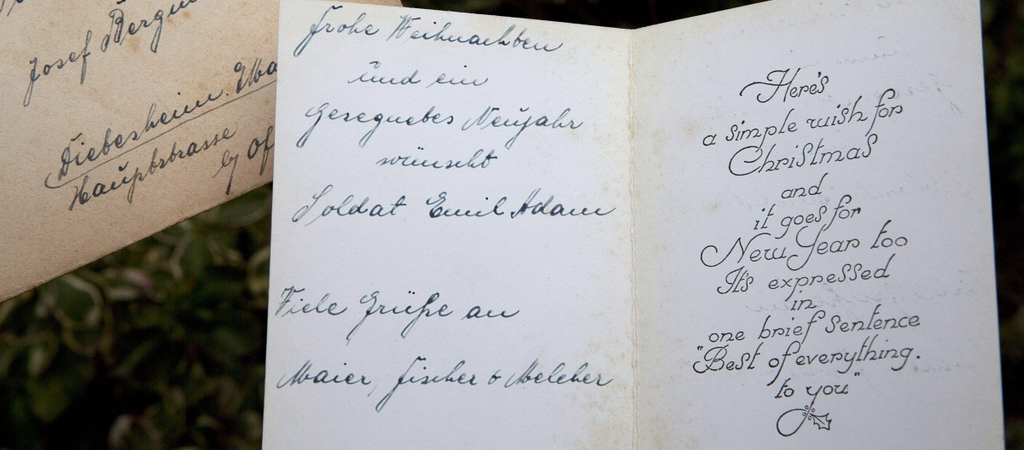 Josef Bergm
Diebesheim
Hauptstrasse
by Of
Frohe Weihnachten
und ein
Gesegnetes Neujahr
wünscht
Soldat Emil Adam
Viele Grüße an
Maier, Fischer & Melcher
Here's
a simple wish for
Christmas
and
it goes for
New Year too
It's expressed
in
one brief sentence
"Best of everything.
to you"